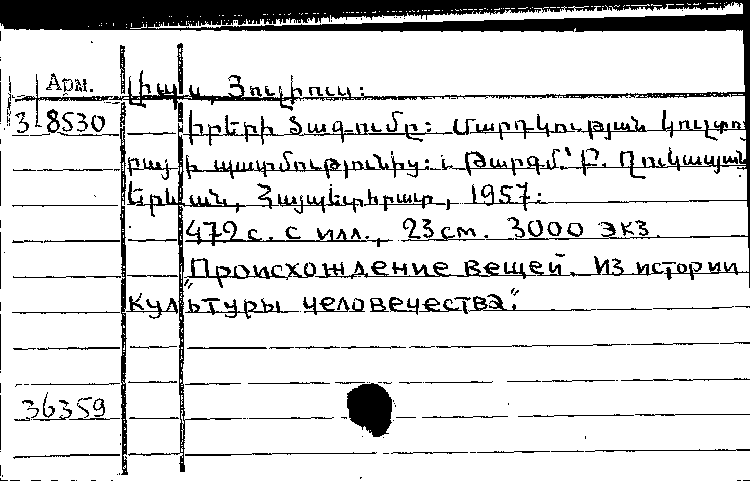 Арм.
Լիպս, Յուլիուս:
3-8530
Իրերի ծագումը: Մարդկության կուլտու
րայի պատմությունից: Թարգմ.՝ Բ. Ղուկասյան
Երևան, Հայպետհրատ, 1957:
472 с. с илл., 23 см. 3000 экз.
„Происхождение вещей. Из истории
культуры человечества“.
36359